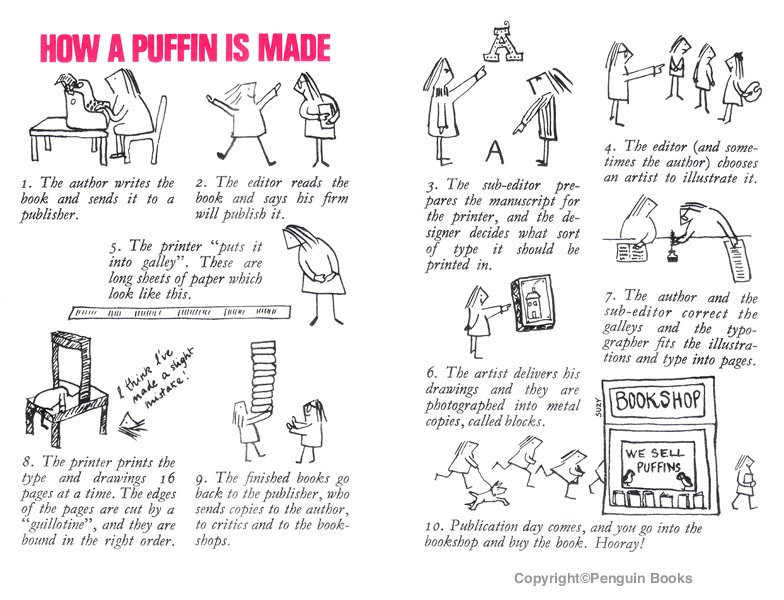 HOW A PUFFIN IS MADE
1. The author writes the
book and sends it to a
publisher.
2. The editor reads the
book and says his firm
will publish it.
A
A
3. The sub-editor pre-
pares the manuscript for
the printer, and the de-
signer decides what sort
of type it should be
printed in.
4. The editor (and some-
times the author) chooses
an artist to illustrate it.
5. The printer "puts it
into galley". These are
long sheets of paper which
look like this.
6. The artist delivers his
drawings and they are
photographed into metal
copies, called blocks.
7. The author and the
sub-editor correct the
galleys and the typo-
grapher fits the illustra-
tions and type into pages.
I think I've
made a slight
mistake!
8. The printer prints the
type and drawings 16
pages at a time. The edges
of the pages are cut by a
"guillotine", and they are
bound in the right order.
9. The finished books go
back to the publisher, who
sends copies to the author,
to critics and to the book-
shops.
SUZY
BOOKSHOP
WE SELL
PUFFINS
10. Publication day comes, and you go into the
bookshop and buy the book. Hooray!
Copyright©Penguin Books